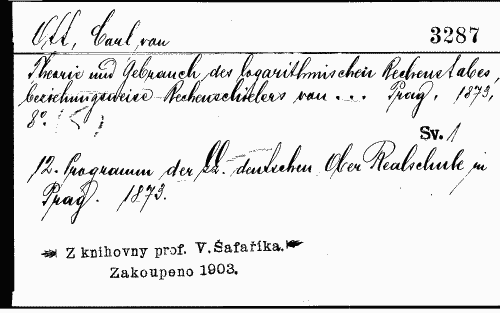 Ott, Carl von
3287
Theorie und Gebrauch des logarithmischen Rechenstabes,
beziehungsweise Rechenschiebers von ... Prag. 1873,
8º.
Sv. 1
12. Programm der deutschen Ober Realschule in
Prag. 1873.
Z knihovny prof. V. Šafaříka.
Zakoupeno 1903.